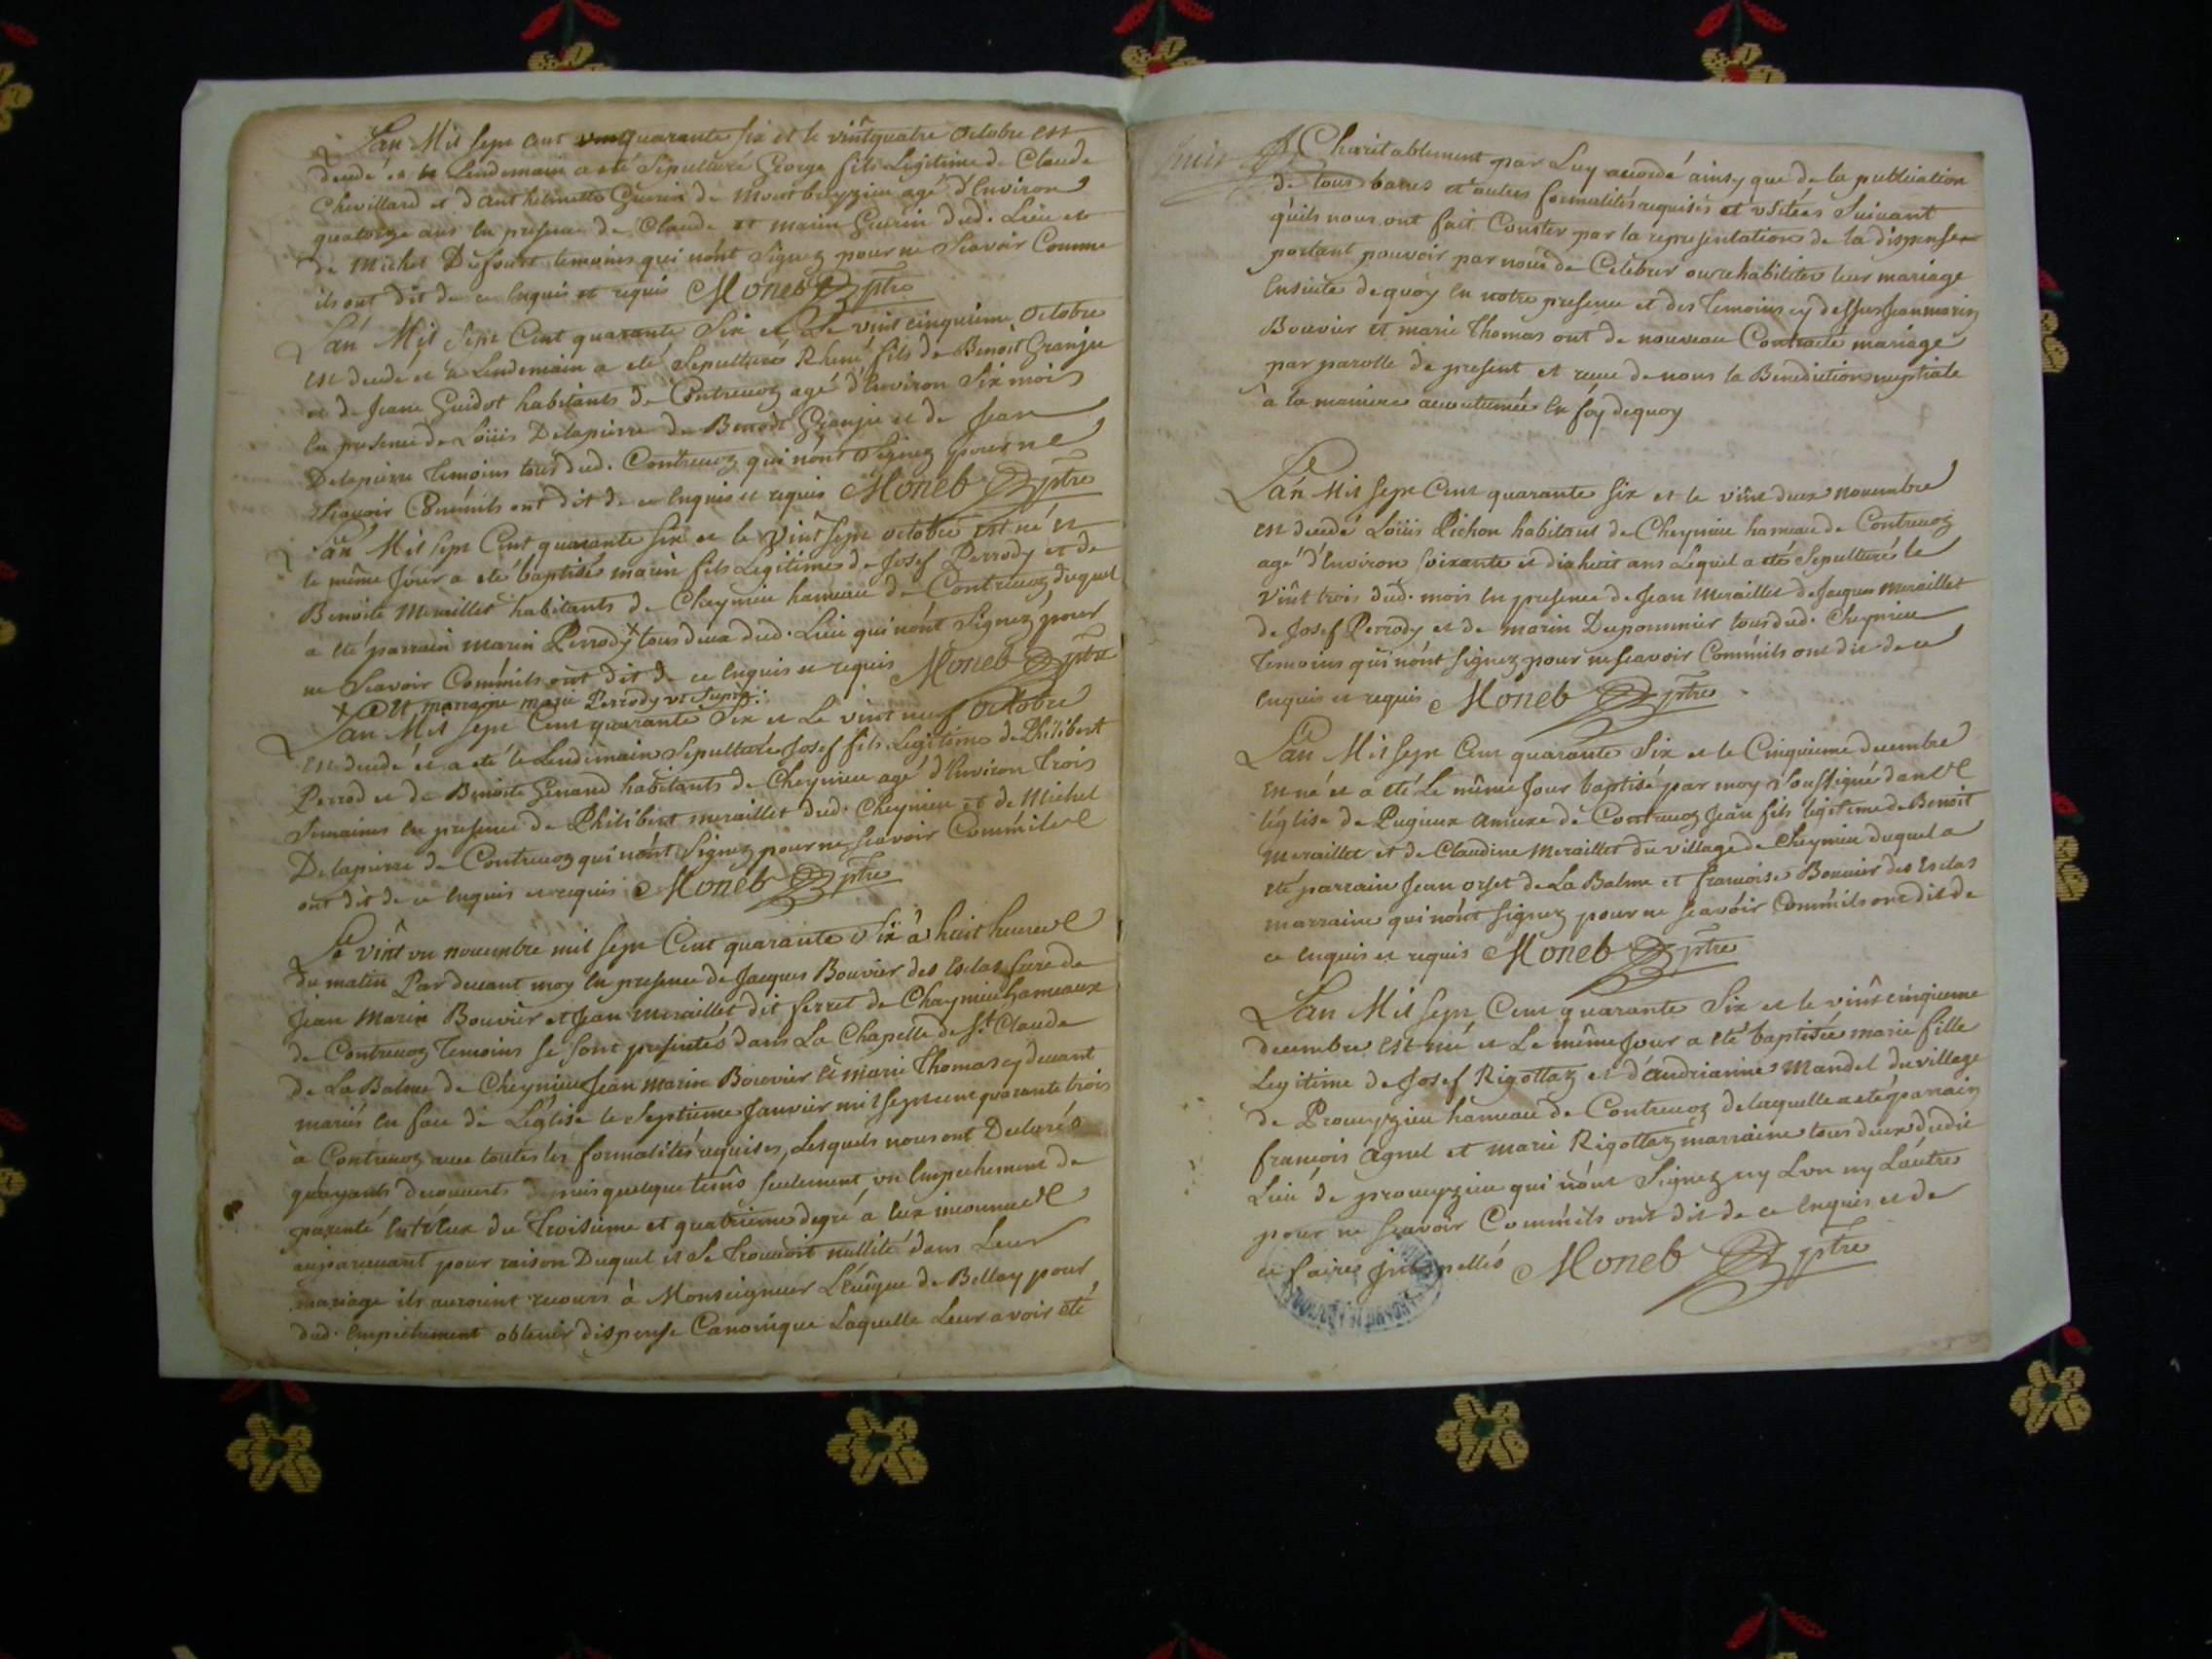 L'an Mil sept cent quarante six et le vintquatre octobre est
decedé et le Lendemain a eté Sepulturé George fils Legitime de Claude
Chevillard et d'anthelmette Guerin de Montbreyzieu agé d'Environ
quatorze ans en presence de Claude et marin Guerin dud. Lieu et
de Michel Dufour temoins qui n'ont Signez pour ne Scavoir Comme
ils ont dit de ce Enquis et requis Moneb ptre
L'an Mil Sept Cent quarante Six et Le vint cinquieme octobre
est decedé et le Lendemain a eté Sepulturé Rhené fils de Benoit Granju
et de Jeane Guidot habitants de Contrevoz agé d'Environ Six mois
En presence de Loüis Delapierre de Benoit Granju et de Jean
Delapierre Temoins tous dud. Contrevoz qui n'ont Signez pour ne
Scavoir Comm'ils ont dit de ce Enquis et requis Moneb ptre
L'an Mil sept Cent quarante Six et le Vint Sept octobre est né et
le même Jour a eté baptisé marin fils Legitime de Josef Perrody et de
Benoite Meraillet habitants de Cheynieu hameau de Contrevoz duquel
a eté parrain marin Perrody x tous deux dud. Lieu qui n'ont Signez pour
ne Scavoir Comm'ils ont dit de ce Enquis et requis Moneb ptre
x Et marraine marie Perrody vt supra.
L'an Mil sept Cent quarante Six et Le vint neuf octobre
Est decedé et a eté le Lendemain Sepulturé Josef fils Legitime de Philibert
Perrod et de Benoite Genand habitants de Cheynieu agé d'Environ trois
Semaines en presence de Philibert meraillet dud. Cheynieu et de Michel
Delapierre de Contrevoz qui n'ont Signez pour ne Scavoir Comm'ils
ont dit de ce Enquis et requis Moneb ptre
Le vint un novembre mil sept Cent quarante Six à huit heures
du matin Par devant moy En presence de Jacques Bouvier des Esclas frere de
Jean Marin Bouvier et Jean meraillet dit ferret de Cheynieu hameaux
de Contrevoz Temoins se Sont presentés dans La Chapelle de St. Claude
de La Balme de Cheynieu Jean marin Bouvier et marie Thomas cy devant
mariés En face de L'église le Septieme Janvier mil sept cent quarante trois
à Contrevoz avec toutes les formalités requises, Lesquels nous ont Declarés
qu'ayants decouverts depuis quelque tems seulement un Empechement de
parenté Entr'Eux du Troisieme et quatrieme degré à Eux inconnu
auparavant pour raison Duquel il Se Trouvoit nullité dans Leur
mariage ils auroint recours à Monseigneur L'Evêque de Bellay pour
dud. Empechement obtenir dispense Canonique Laquelle Leur avoir eté
Charitablement par Luy accordé ainsy que de la publication
de tous banes et autres formalités requises et vsitées Suivant
qu'ils nous ont fait Conster par la representation de la dispense
portant pouvoir par nous de Celebrer ou rehabiliter leur mariage
Ensuite dequoy En notre presence et des Temoins cy dessus Jean marin
Bouvier et marie Thomas ont de nouveau Contracté mariage
par parolle de present et receu de nous la Benediction nuptiale
à la maniere accoutumée En foy dequoy
L'an Mil sept Cent quarante Six et le vint deux novembre
est decedé Loüis Pichon habitant de Cheynieu hameau de Contrevoz
agé d'Environ soixante et dix huit ans Lequel a eté Sepulturé le
vint trois dud. mois En presence de Jean meraillet de Jacques meraillet
de Josef Perrody et de marin Dupommier tous dud. Cheynieu
Temoins qui n'ont Signez pour ne scavoir Comm'ils ont dit de ce
Enquis et requis Moneb ptre
L'an Mil sept Cent quarante Six et le Cinquieme decembre
Est né et a eté Le même Jour baptisé par moy Soussigné dans
l'église de Pugieux annexe de Contrevoz Jean fils legitime de Benoit
Meraillet et de Claudine Meraillet du village de Cheynieu duquel a
eté parrain Jean orset de La Balme et francoise Bouvier des Esclas
marraine qui n'ont Signez pour ne scavoir Comm'ils ont dit de
ce Enquis et requis Moneb ptre
L'an Mil sept Cent quarante Six et le vint cinquieme
decembre Est né et Le même Jour a eté baptisée marie fille
Legitime de Josef Rigottaz et d'andrianne Mandel du village
de Promeyzieu hameau de Contrevoz de laquelle a eté parrain
francois agnel et marie Rigottaz marraine tous deux dudit
Lieu de promeyzieu qui n'ont Signez ny L'vn ny L'autre
pour ne Scavoir Comm'ils ont dit de ce Enquis et de
ce faire Jnterpellés Moneb ptre